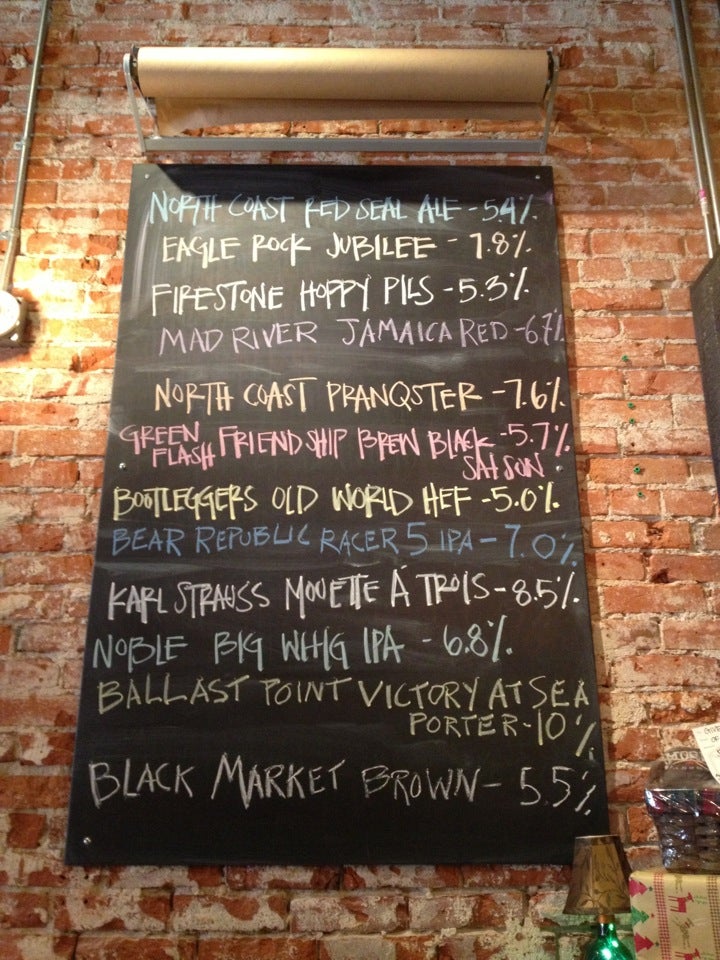 NORTH COAST RED SEAL ALE - 5.4%
EAGLE ROCK JUBILEE - 7.8%
FIRESTONE HOPPY PILS - 5.3%
MAD RIVER JAMAICA RED - 6.7%
NORTH COAST PRANQSTER - 7.6%
GREEN FLASH FRIENDSHIP BREW BLACK - 5.7%
SAISON
BOOTLEGGERS OLD WORLD HEF - 5.0%
BEAR REPUBLIC RACER 5 IPA - 7.0%
KARL STRAUSS MOUETTE À TROIS - 8.5%
NOBLE BIG WHIG IPA - 6.8%
BALLAST POINT VICTORY AT SEA
PORTER - 10%
BLACK MARKET BROWN - 5.5%